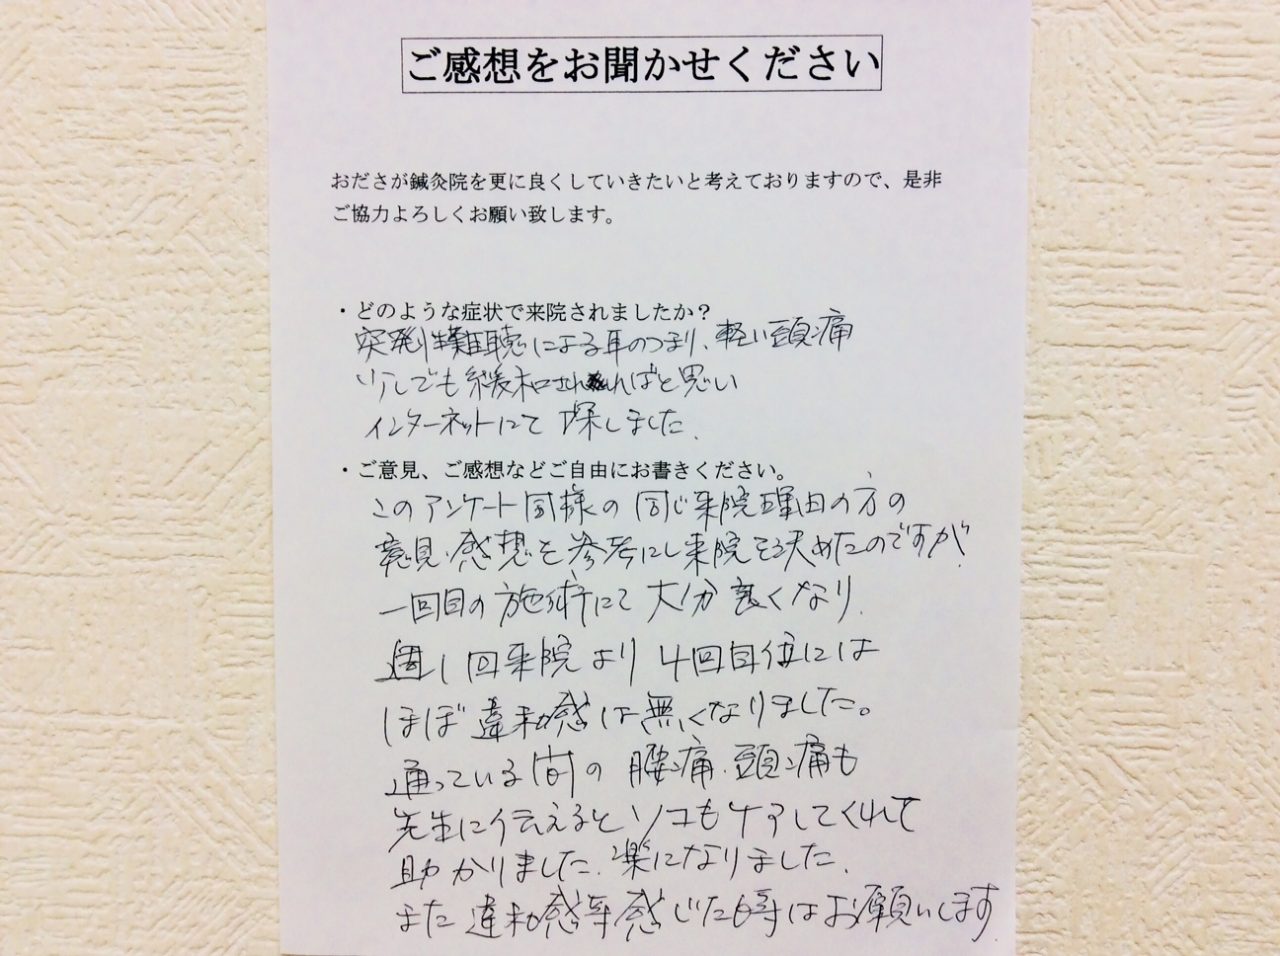 ご感想をお聞かせください
おださが鍼灸院を更に良くしていきたいと考えておりますので、是非
ご協力よろしくお願い致します。
・どのような症状で来院されましたか？
突発性難聴による耳のつまり、軽い頭痛
少しでも緩和されればと思い
インターネットにて探しました、
・ご意見、ご感想などご自由にお書きください。
このアンケート同様の同じ来院理由の方の
意見・感想を参考にし来院を決めたのですが
一回目の施術にて大分良くなり、
週1回来院より4回目位には
ほぼ違和感は無くなりました。
通っている間の腰痛、頭痛も
先生に伝えるとソコもケアしてくれて
助かりました、楽になりました、
また違和感等感じた時はお願いします